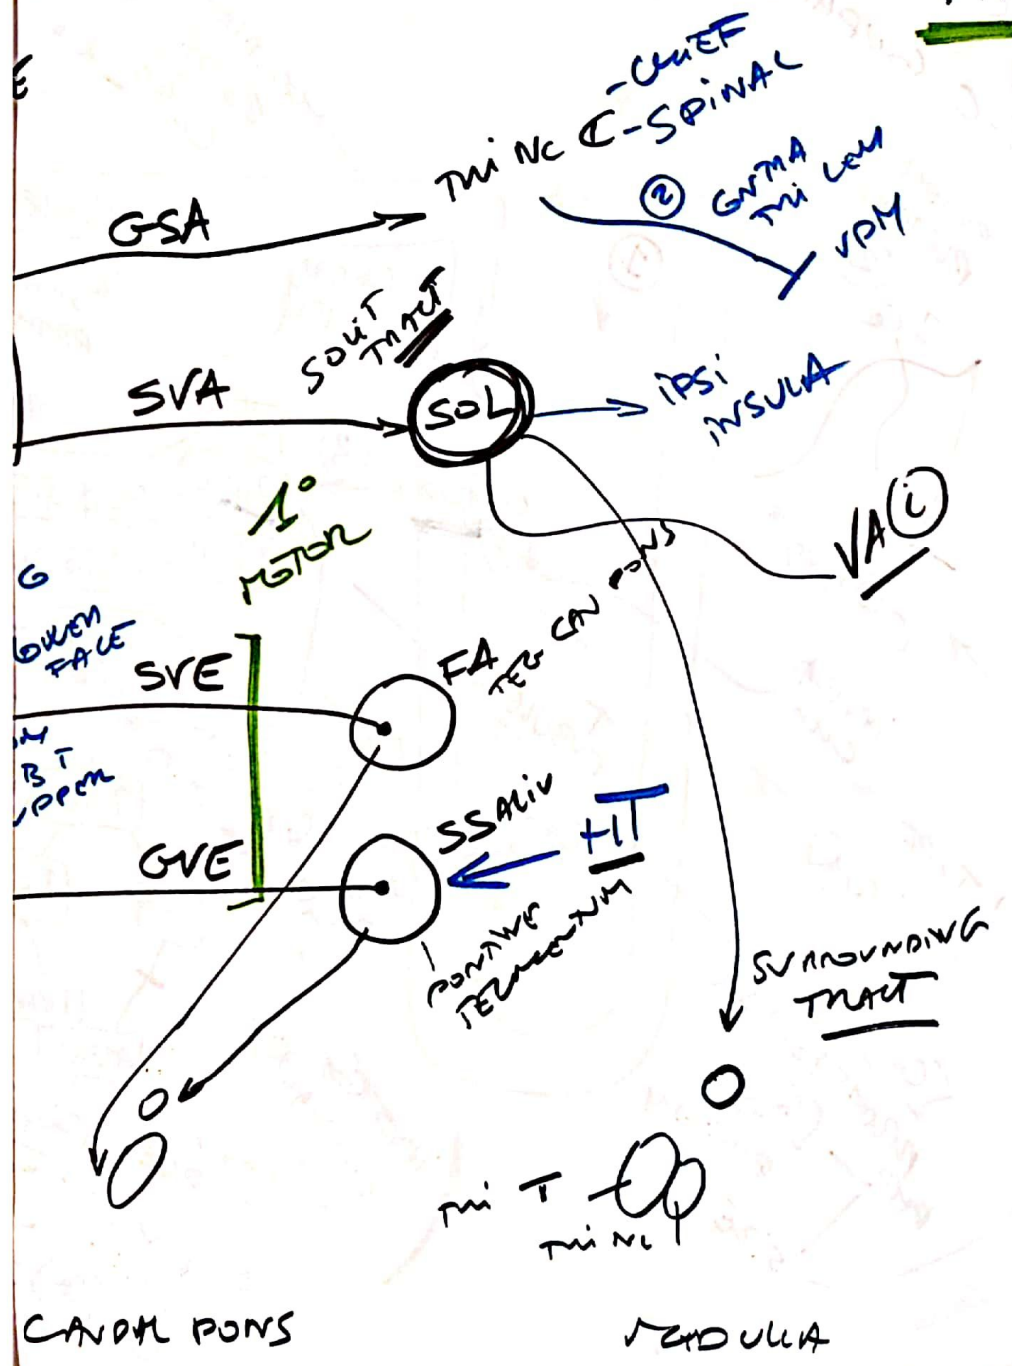 -CHIEF
TRI NC C-SPINAL
②
CNTRA
TRI LEM
VPM
GSA
SOLIT
TRACT
SVA
SOL
IPSI
INSULA
1°
MOTOR
VA ⓘ
G
OWER
FACE
SVE
FA
TEG CAU PONS
BT
UPPER
GVE
SSALIV
HT
PONTINE
TEGMENTUM
SURROUNDING
TRACT
TRI T
TRI NC
CAUDAL PONS
MEDULLA